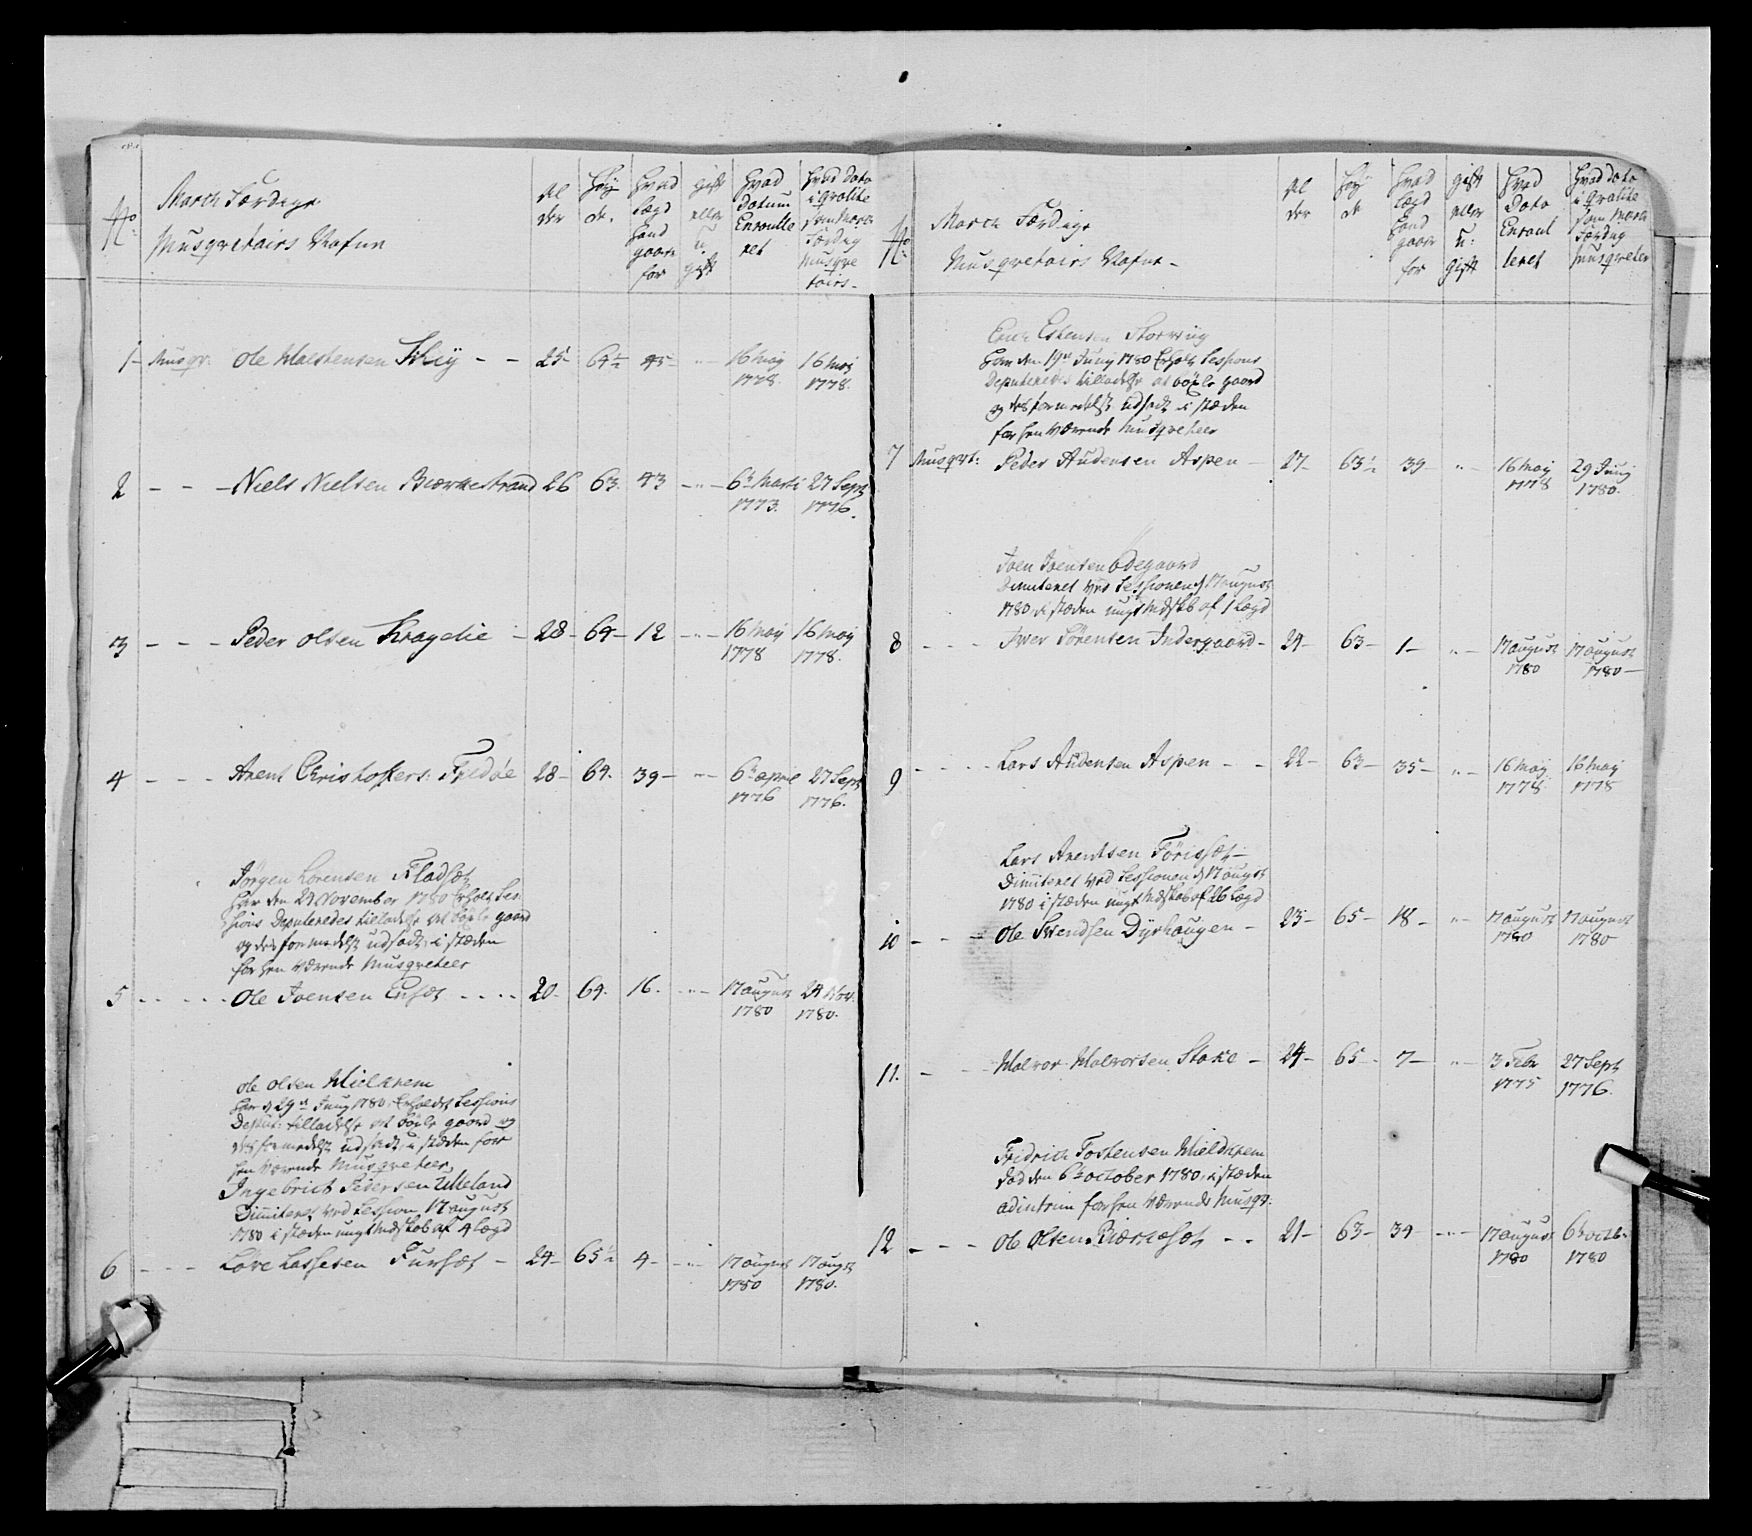 No March Færdige Musqvetairs Nafne
Al der
Høy de.
Hvad Lægd Hand gaar for
gift eller u. gift
Hvad Datum Enroulle ret
Hvad Dato i Qvalite som March Færdig Musqve tairs
1 - Musqr. Ole Halstensen Schiy - - 25 - 64½ 45 - " - 16 May 1778. 16 May 1778.
2 - - - Niels Nielsen Biørnestrand 26 63. 43 - " - 6t Marti 1773. 27 Sept 1776.
3 - - - Peder Olsen Kragelie - 28 - 64 - 12 - " - 16 May 1778 16 May 1778.
4 - - - Arent Christoffers: Fredøe 28 - 64. 39 - " - 6t april 1776 27 Sept 1776.
Jørgen Lorensen Fladsæt
har den 24 November 1780 Erholdt Ses-
sions Deputeredes tilladelse at bøxle gaard
og derformedelst udsadt, i stæden
for hen værende Musqveteer
5 - - - Ole Joensen Enset - - - 20 - 64. 16. - " - 17 august 1780 24 Nov. 1780.
Ole Olsen Mielknem
har d 29de Juny 1780. Erholdet Sessions
Deput: tilladelse at bøxle gaard og
derformedelst udsadt, i stæden for
hen værende Musqveteer,
Ingebrict Pedersen Ulleland
Dimiteret ved Session 17 august
1780 i stæden ungt Mdskb af 4 Lægd
6 - - - Lasse Lassesen Fursæt - 24 - 65½ 4 - - " - 17 august 1780 17 augst 1780.
No March Færdige Musqvetairs Nafne -
Al der
Høy de
Hvad Lægd Hand gaar for
gift eller u: gift
Hvad Dato Enroul leret
Hvad Dato i Qvalite som March Færdig Musqveter
Estensen
har den 19de Juny 1780 Erholdt Sessions
Deputeredes tilladelse at bøxle gaard
og derformedelst udsadt i stæden
for hen værende Musqveteer
7 Musqvt: Peder Audensen Aspen - 27 - 63½ 39 - " - 16 May 1778 29 Juny 1780.
Joen Joensen Ødegaard
Dimiteret ved Sessionen d 17 august
1780, i stæden ungt Mdskb af 1 Lægd
8 - - - Iver Sørensen Indergaard - 24 - 63 - 1 - " - 17 august 1780 17 august 1780 -
9 - - - Lars Audensen Aspen - - 22 - 63 - 35 - " - 16 May 1778 16 May 1778
Lars Arentsen Førissæt -
Dimiteret ved Sessionen d 17 augst
1780 i stæden ungt Mdskb af 26 Lægd
10 - - - Ole Svendsen Dyrhaugen - 23 - 65 - 18 - " - 17 august 1780 17 august 1780
11. - - Halvor Halvorsen Stoke - 24 - 65 - 7 - " - 3 Febr 1775 27 Sept 1776.
Fridrich Tostensen Mieldknem
Død den 6t october 1780, i stæden
adintrim for hen værende Musqr.
12 - - - Ole Olsen Biørnesæt - - 21 - 63 - 34 - " - 17 august 1780 6t octb. 1780